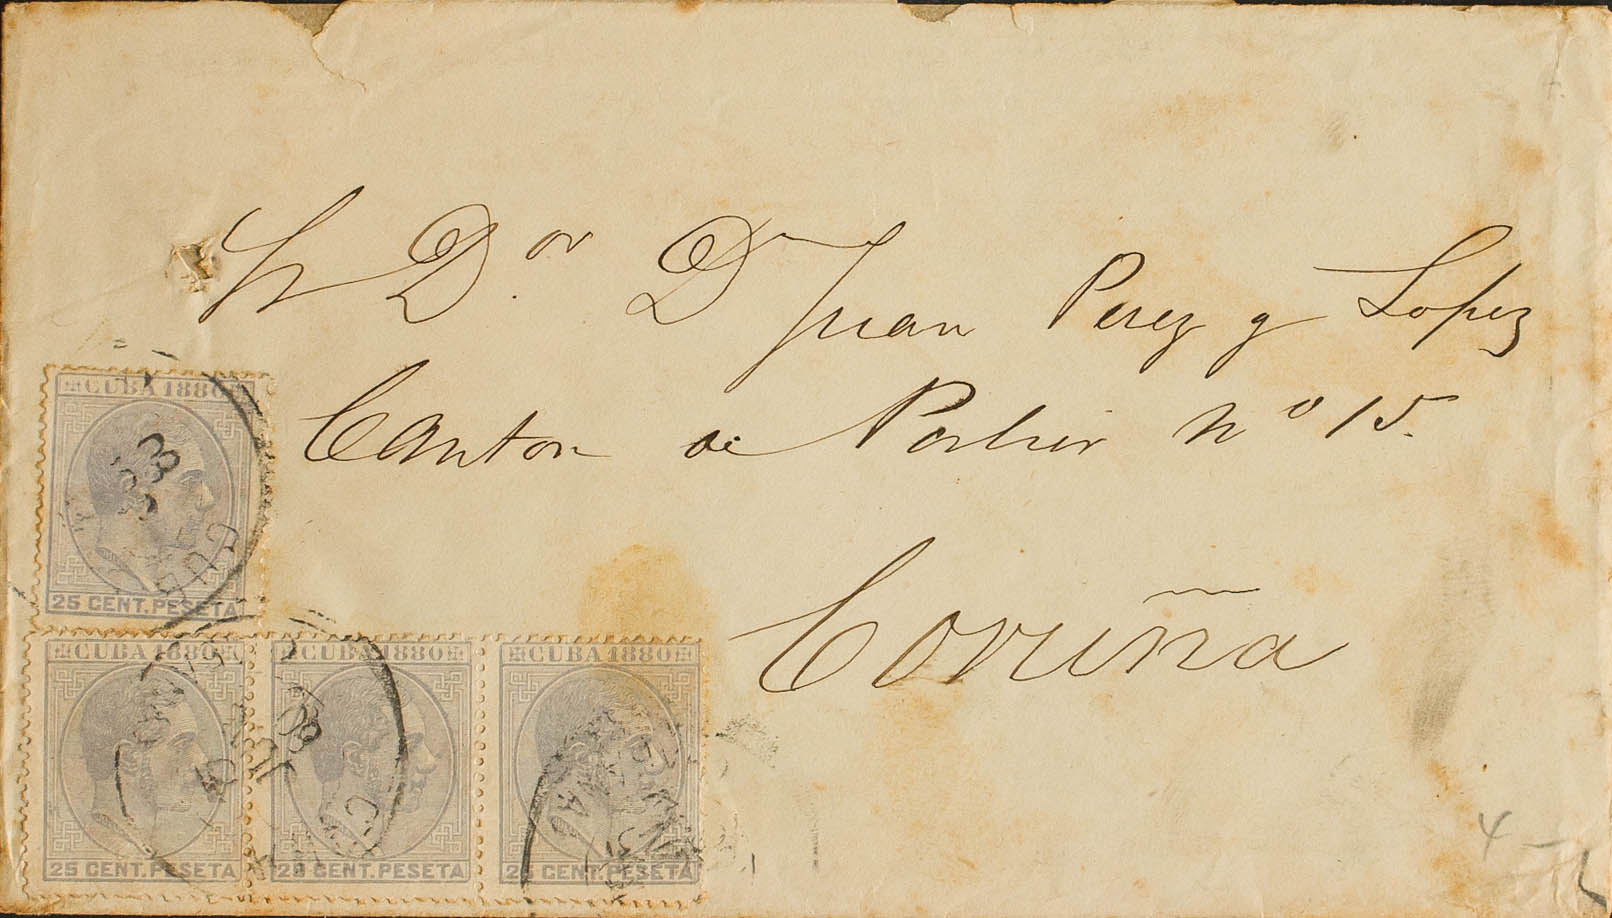 Sr Dor. Dn Juan Perez y Lopez
Canton de Porlier No 15.
Coruña
CUBA 1880
25 CENT. PESETA
CUBA 1880
CUBA 1880
CUBA 1880
25 CENT. PESETA
25 CENT. PESETA
25 CENT. PESETA
4